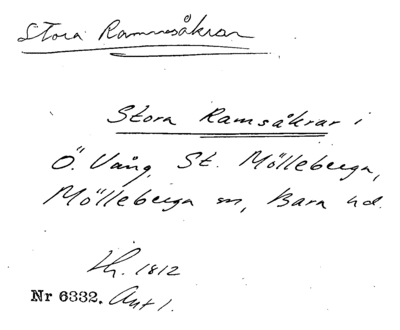 Stora Ramnsåkrar
Stora Ramsåkrar i
Ö. Vång, St. Mölleberga,
Mölleberga sn, Bara hd.
1812
Nr 6332. Ant 1.